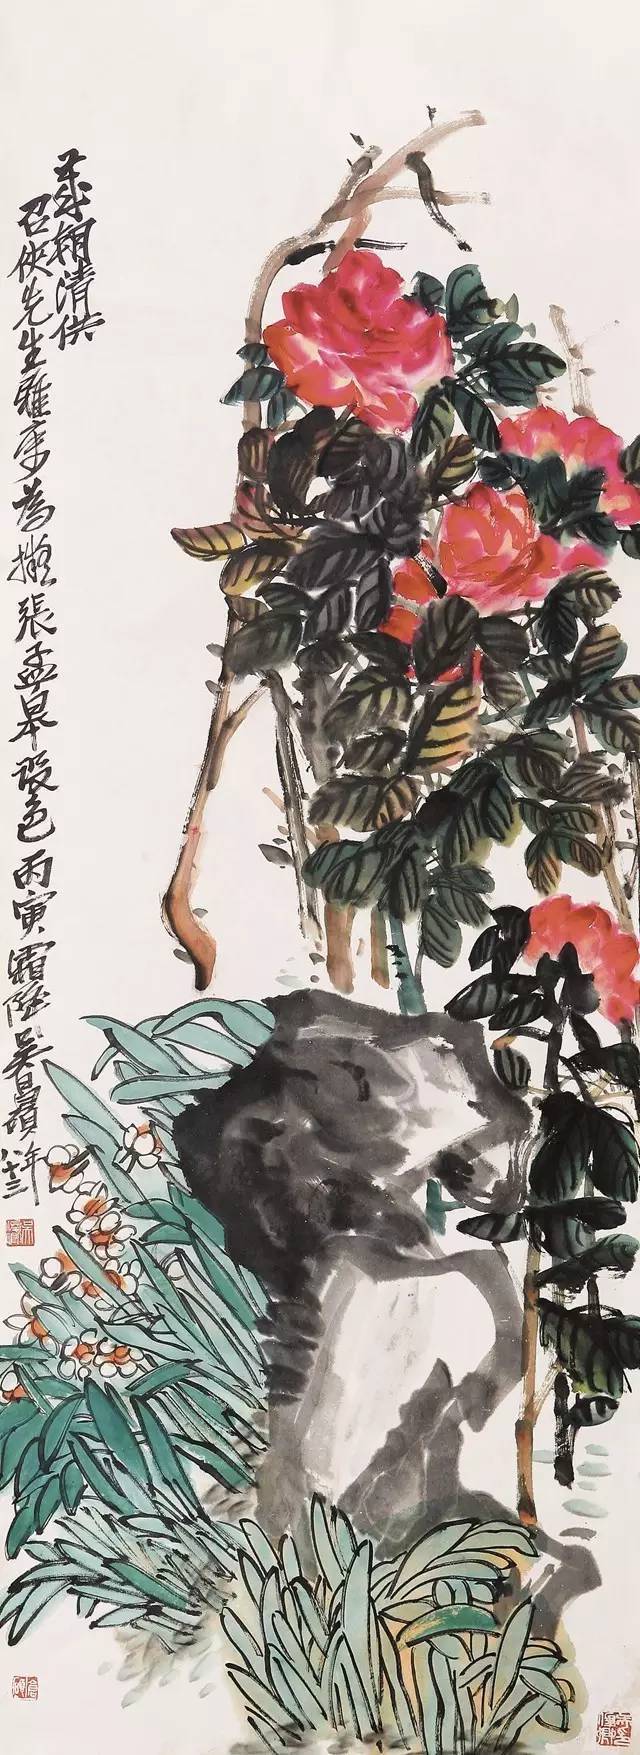 歲朝清供
召俠先生雅屬為擬張孟皋設色丙寅霜降吳昌碩年
八十三